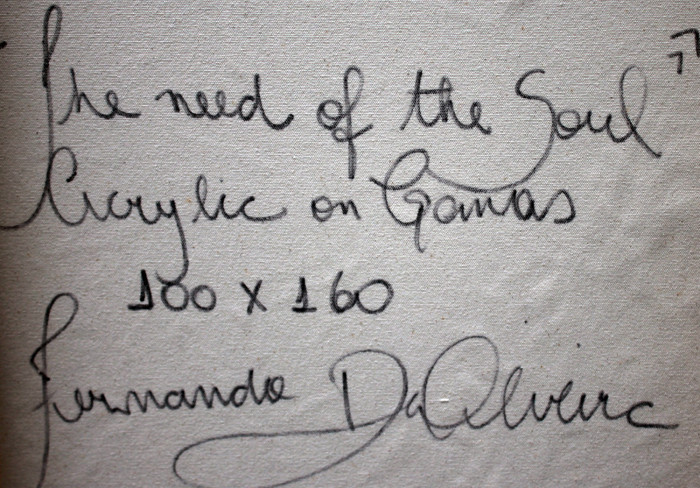 "The need of the Soul"
Acrylic on Canvas
100 x 160
Fernando DaOlveira